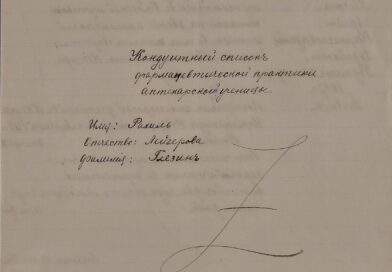 Кондуитный списокъ
фармацевтической практики
аптекарской ученицы.
Имя: Рахиль
Отчество: Лейзерова
Фамилия: Глезинъ